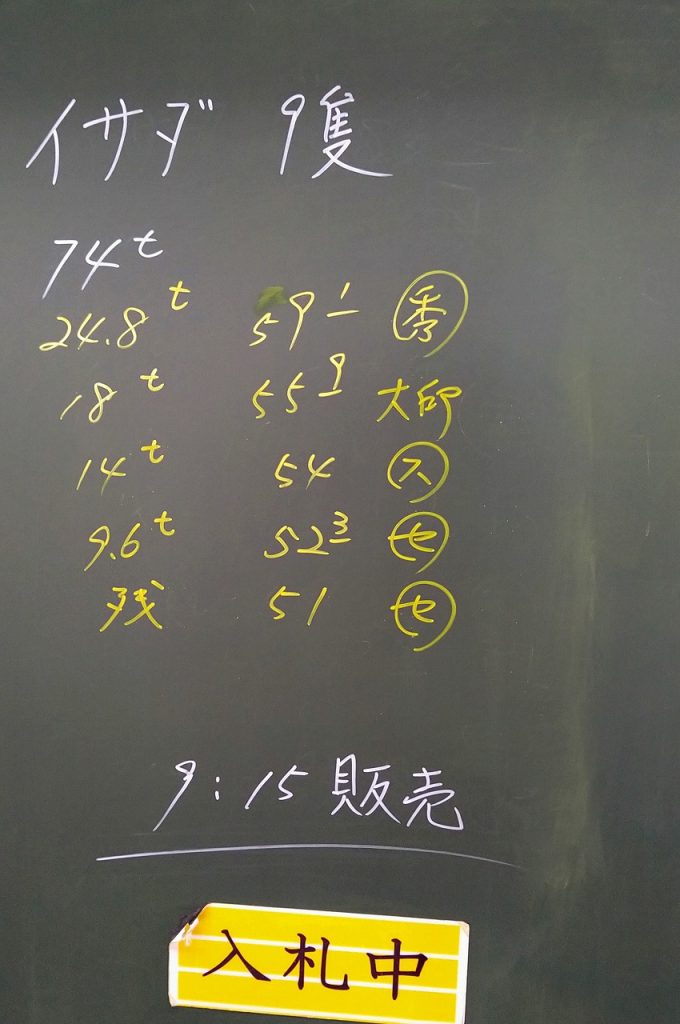 イサダ 9隻
74t
24.8t 591 秀
18t 559 大印
14t 54 ス
9.6t 523 セ
残 51 セ
9:15 販売
入札中